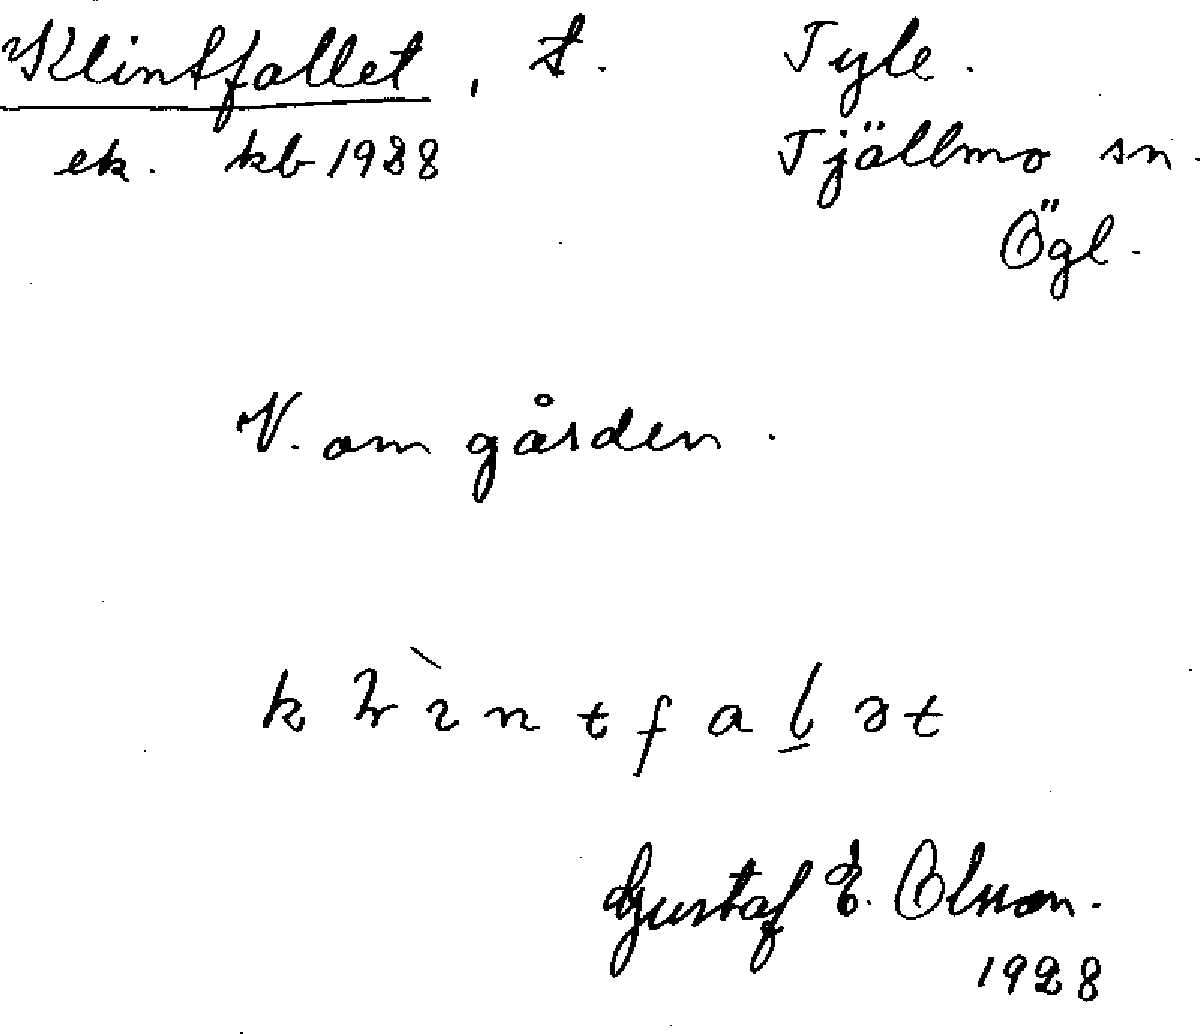 Klintfallet, t. Tyle.
ek. kb 1928 Tjällmo sn.
Ögl.
V. om gården.
k l ì n t f a l ə t
Gustaf E. Olsson.
1928